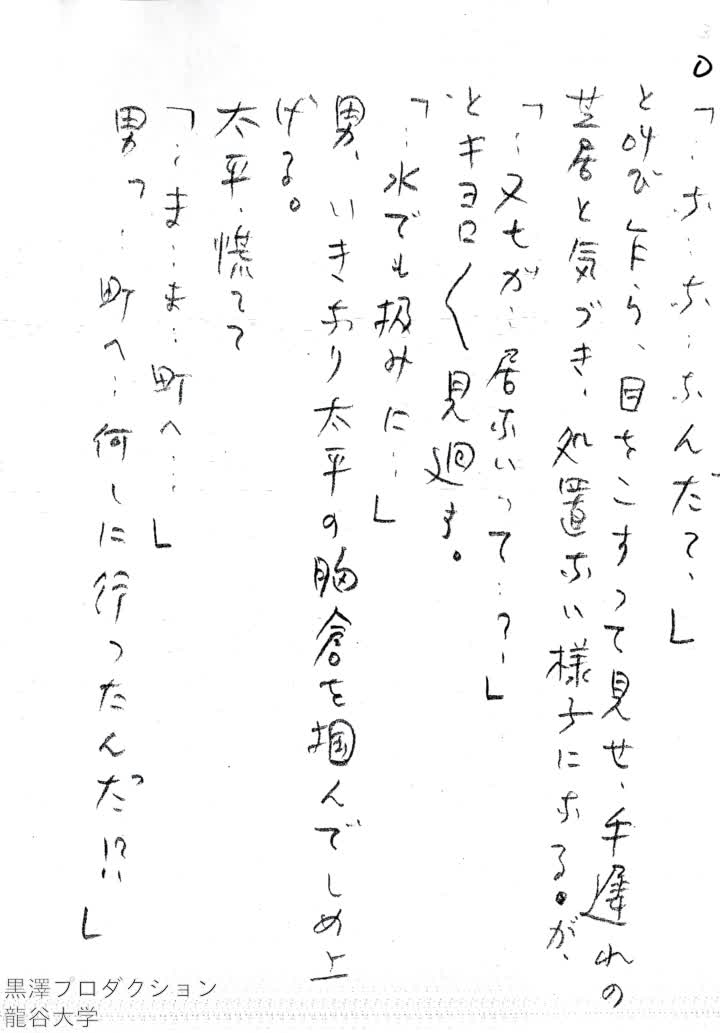 「…な…な…なんだて、」
と叫び乍ら、目をこすって見せ、手遅れの
芝居と気づき、処置ない様子になる。が、
「…又七が…居ないって…?、」
とキョロ〱見廻す。
「…水でも扱みに…」
男、いきなり太平の胸倉を掴んでしめ上
げる。
太平、慌てて
「…ま…ま…町へ…」
男「…町へ…何しに行ったんだ!?」
黒澤プロダクション
龍谷大学